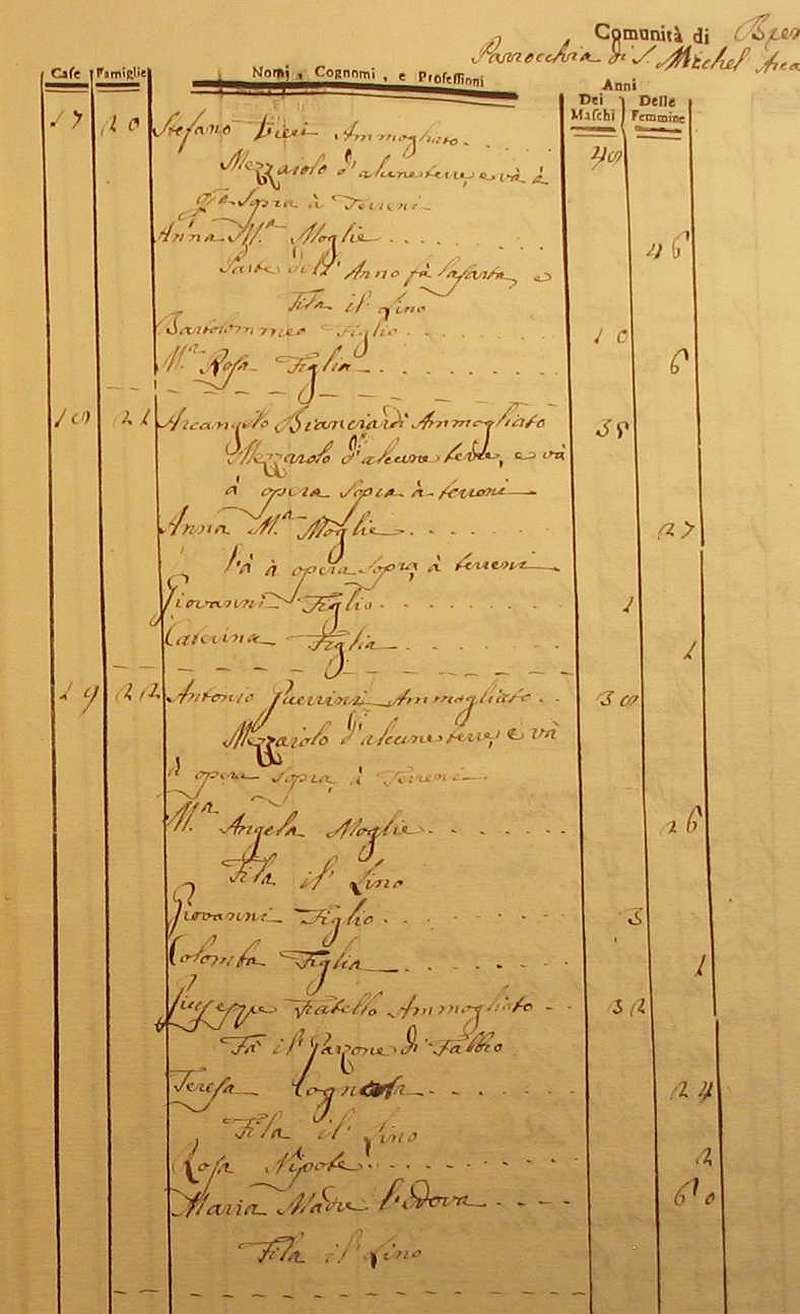 Comunità di
Parrocchia di S. Michel Arca
Case Famiglie Nomi, Cognomi, e Professioni Anni
Dei Maschi Delle Femmine
17 20 Stefano Ammogliato. 48
Mezzarolo d'alcune terre, e và à
opra sopra à Terreni
Anna M.a Moglie 46
Parte dell'Anno fà la sarta, e
Fila il Lino
Bartolommeo Figlio 10
M.a Rosa Figlia 6
18 21 Arcangelo Bianciardi Ammogliato 38
Mezzarolo d'alcune terre, e và
à opera sopra à terreni
Anna M.a Moglie 27
Và à opera sopra à terreni
Giovanni Figlio 1
Caterina Figlia 1
19 22 Antonio Guerrini Ammogliato 38
Mezzarolo d'alcune terre, e và
à opera sopra à Terreni
M.a Angela Moglie 26
Fila il Lino
Giovanni Figlio 3
Colomba Figlia 1
Giuseppe Fratello Ammogliato 32
Fà il Garzone di Fabbro
Teresa Cognata 24
Fila il Lino
Rosa Nipote 2
Maria Madre Vedova 60
Fila il Lino